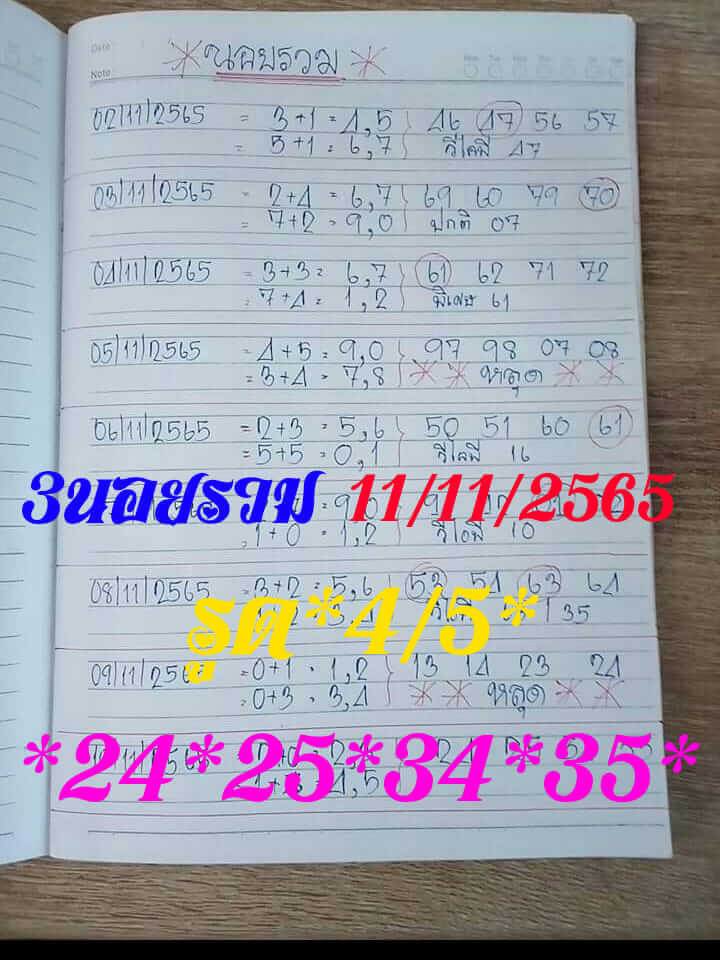 Date
Note
* นอยรวม *
02/11/2565 = 3+1 = 4,5 } 46 47 56 57
= 5+1 = 6,7 } 47
03/11/2565 = 2+4 = 6,7 } 69 60 79 70
= 7+2 = 9,0 } ปกติ 07
04/11/2565 = 3+3 = 6,7 } 61 62 71 72
= 7+4 = 1,2 } 61
05/11/2565 = 4+5 = 9,0 } 97 98 07 08
= 3+4 = 7,8 } * * หลุด * *
06/11/2565 = 2+3 = 5,6 } 50 51 60 61
= 5+5 = 0,1 } 16
3นอยรวม 11/11/2565
1+0 = 1,2 10
08/11/2565 = 3+2 = 5,6 } 53 54 63 64
รูด*4/5*
35
09/11/2565 = 0+1 = 1,2 } 13 14 23 24
= 0+3 = 3,4 } * * หลุด * *
*24*25*34*35*
4,5